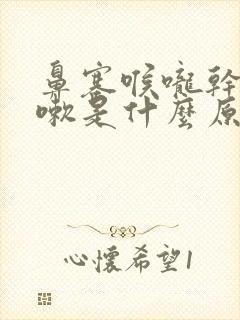 鼻塞喉嚨幹
嗽是什麼原
心懷希望1